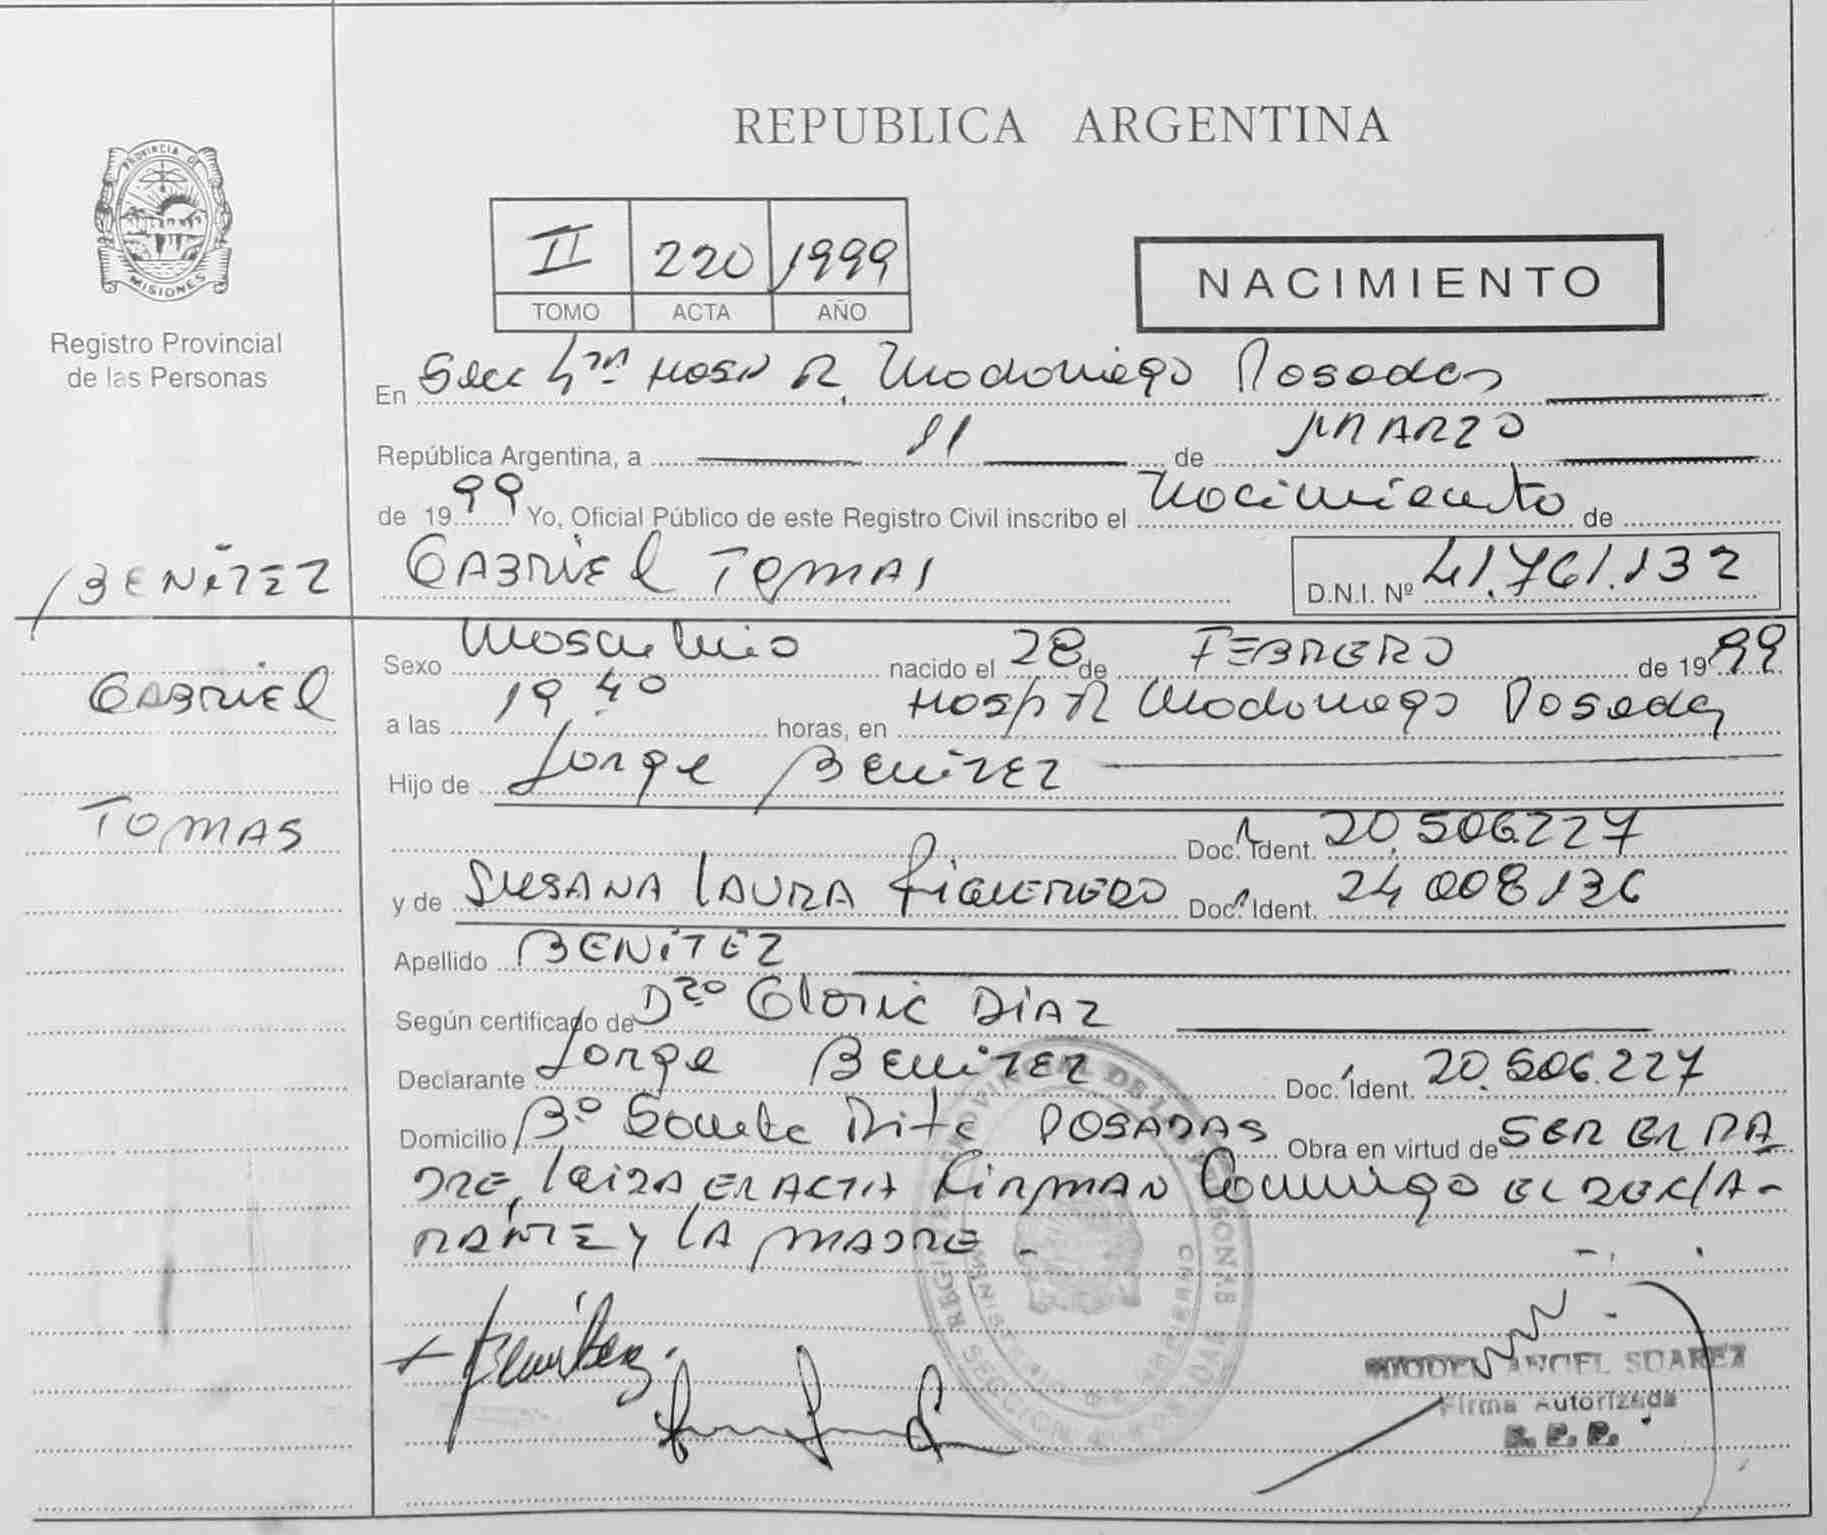 PROVINCIA DE
MISIONES
Registro Provincial
de las Personas
BENITEZ
GABRIEL
TOMAS
REPUBLICA ARGENTINA
II 220 1999
TOMO ACTA AÑO
NACIMIENTO
En Secc 4ta Hosp R. Madariaga Posadas
República Argentina, a 11 de MARZO
de 1999 Yo, Oficial Público de este Registro Civil inscribo el Nacimiento de
GABRIEL TOMAS D.N.I. Nº 41.761.132
Sexo Masculino nacido el 28 de FEBRERO de 1999
a las 19 40 horas, en Hosp R Madariaga Posadas
Hijo de Jorge BENITEZ
Doc. Ident. 20.506.227
y de SUSANA LAURA FIGUEREDO Doc. Ident. 24 008 136
Apellido BENITEZ
Según certificado de Dra Gloria DIAZ
Declarante Jorge BENITEZ Doc. Ident. 20.506.227
Domicilio Bº Santa Rita POSADAS Obra en virtud de SER EL PA
DRE, LEIDA EL ACTA FIRMAN Conmigo EL DECLA-
RANTE Y LA MADRE -
Benitez
ANGEL SUAREZ
Firma Autorizada
R. P. P.